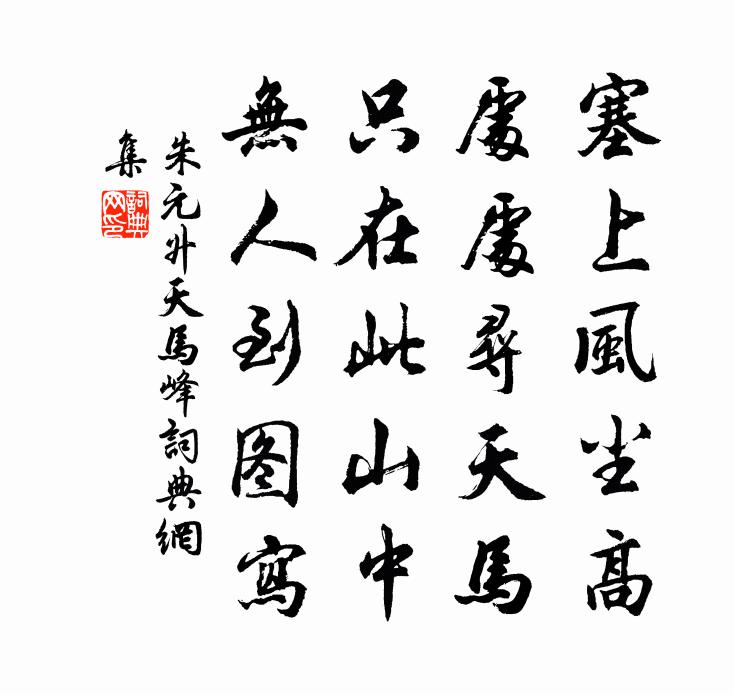 塞上風尘高
處處尋天馬
只在此山中
無人到图寫
朱元升天馬峰詞典網
集
詞典
网印